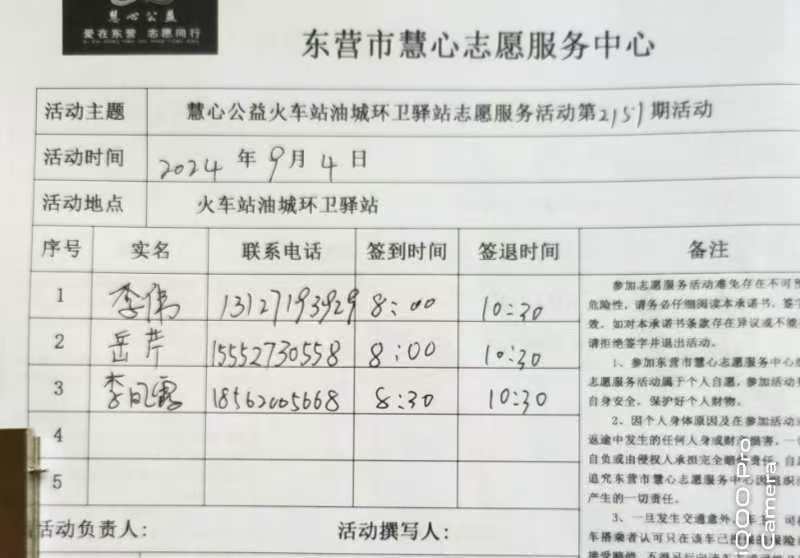 慧心公益
爱在东营 志愿同行
东营市慧心志愿服务中心
活动主题 慧心公益火车站油城环卫驿站志愿服务活动第2151期活动
活动时间 2024年9月4日
活动地点 火车站油城环卫驿站
序号 实名 联系电话 签到时间 签退时间 备注
1 李伟 13127193929 8:00 10:30
2 岳芹 15552730558 8:00 10:30
3 李风露 18562005668 8:30 10:30
4
5
参加志愿服务活动难免存在不可预
危险性,请务必仔细阅读本承诺书,签字
效。如对本承诺书条款存在异议或不能
请拒绝签字并退出活动。
1、参加东营市慧心志愿服务中心
志愿服务活动属于个人自愿,参加活动
自身安全,保护好个人财物。
2、因个人身体原因及在参加活动
返途中发生的任何人身或财产损害,一
自负或由侵权人承担完全赔偿责任,自
追究东营市慧心志愿服务中心因组织
产生的一切责任。
3、一旦发生交通意外
车搭乘者认可只在该车已
活动负责人: 活动撰写人:
OOO Pro
Camera